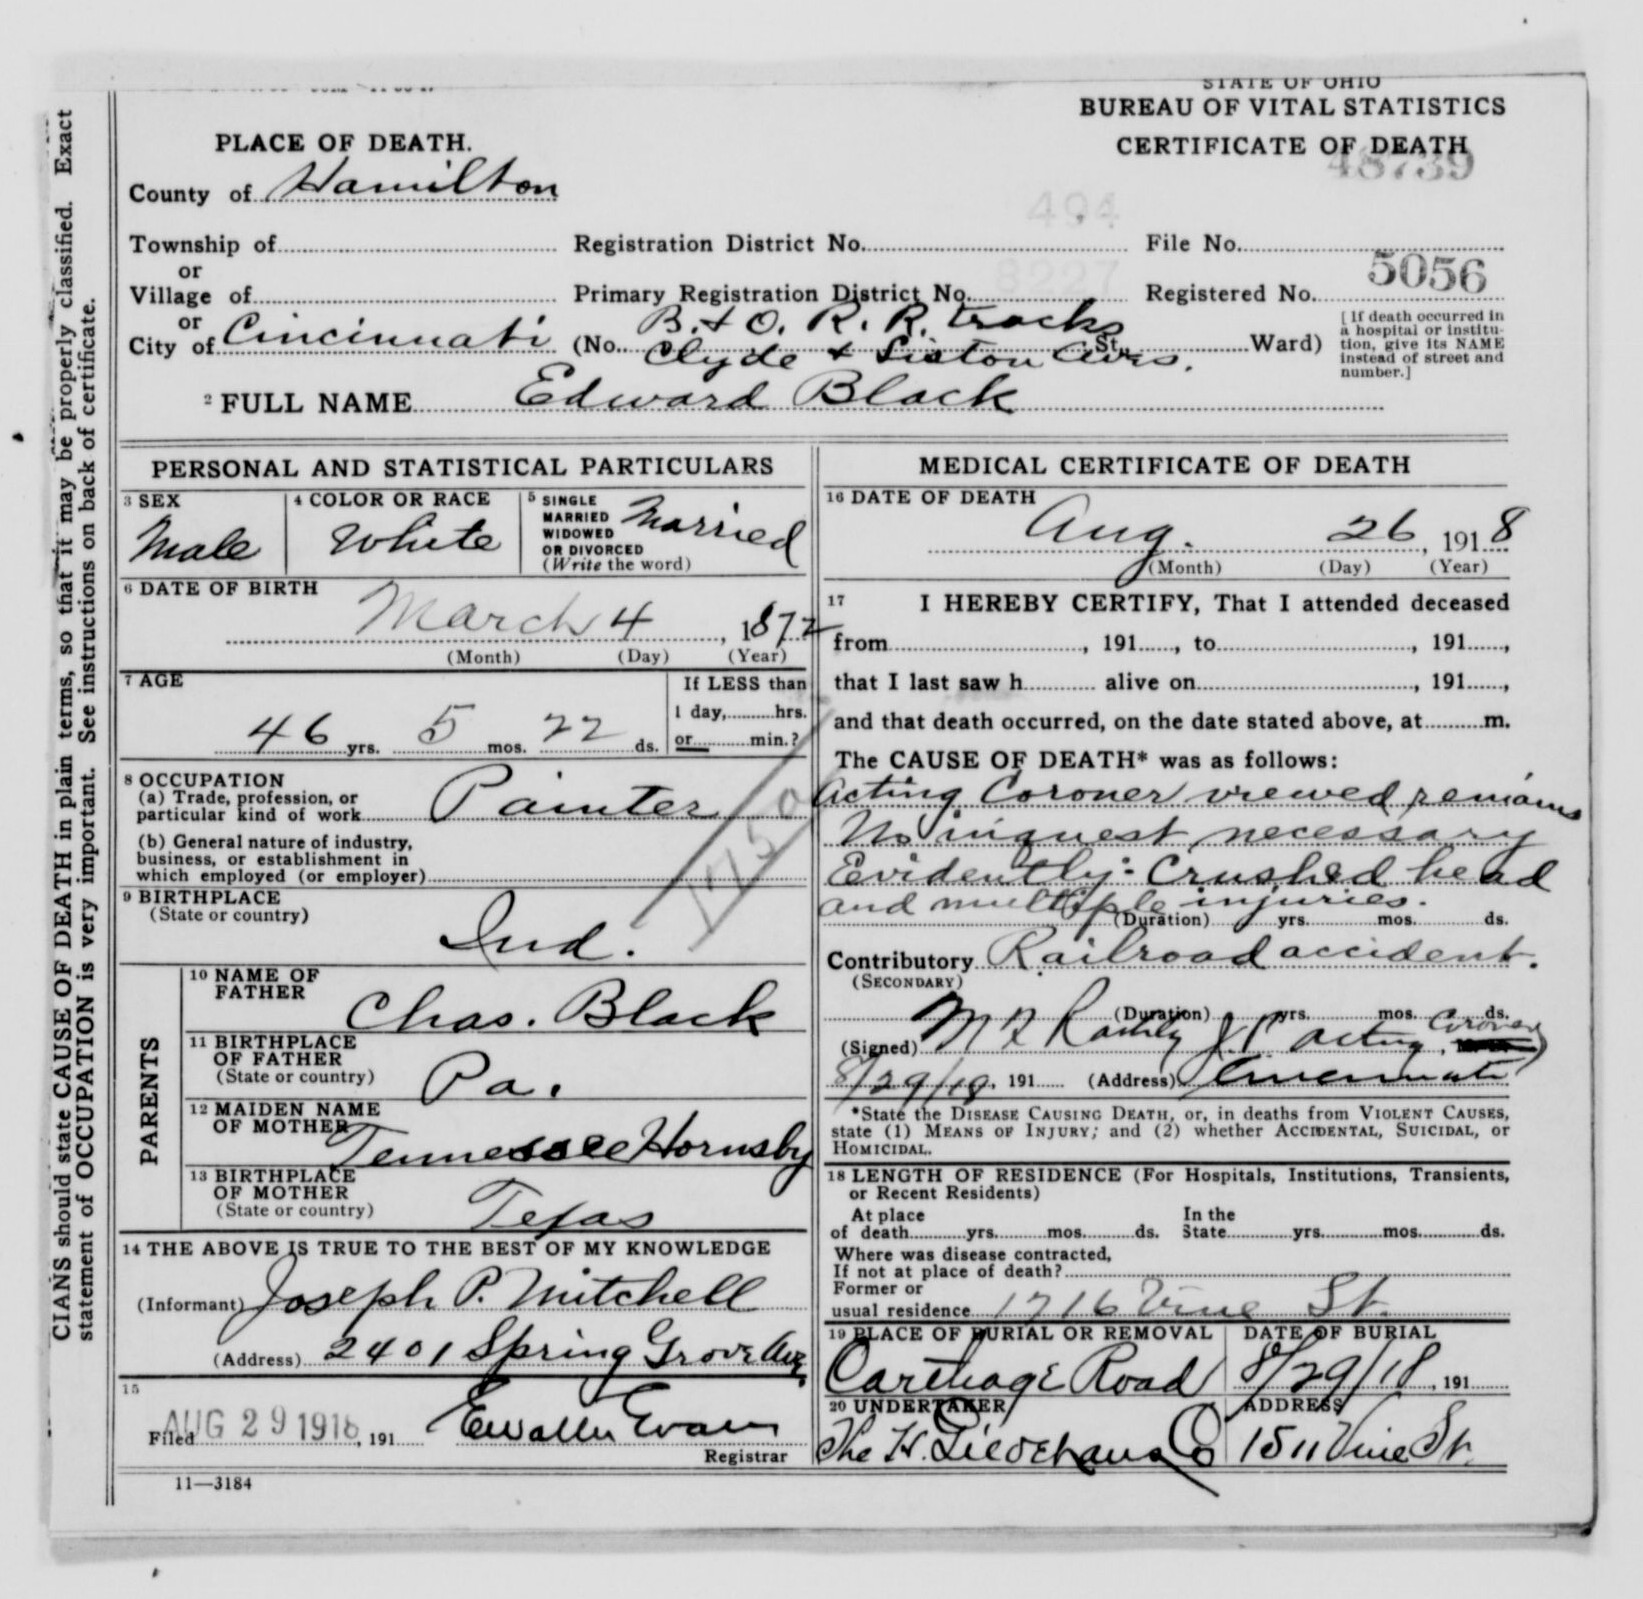 STATE OF OHIO
BUREAU OF VITAL STATISTICS
CERTIFICATE OF DEATH
48739
PLACE OF DEATH.
County of Hamilton
494
Township of Registration District No. File No.
or
8227 5056
Village of Primary Registration District No. Registered No.
or
City of Cincinnati (No. B. & O. R. R. tracks St. Ward)
Clyde & Liston Aves.
[If death occurred in
a hospital or institu-
tion, give its NAME
instead of street and
number.]
2 FULL NAME Edward Black
PERSONAL AND STATISTICAL PARTICULARS
3 SEX
Male
4 COLOR OR RACE
White
5 SINGLE
MARRIED
WIDOWED
OR DIVORCED
(Write the word)
Married
6 DATE OF BIRTH
March 4, 1872
(Month) (Day) (Year)
7 AGE
46 yrs. 5 mos. 22 ds.
If LESS than
1 day, hrs.
or min.?
8 OCCUPATION
(a) Trade, profession, or
particular kind of work Painter
(b) General nature of industry,
business, or establishment in
which employed (or employer)
9 BIRTHPLACE
(State or country)
Ind.
PARENTS
10 NAME OF
FATHER
Chas. Black
11 BIRTHPLACE
OF FATHER
(State or country)
Pa.
12 MAIDEN NAME
OF MOTHER
Tennessee Hornsby
13 BIRTHPLACE
OF MOTHER
(State or country)
Texas
14 THE ABOVE IS TRUE TO THE BEST OF MY KNOWLEDGE
(Informant) Joseph P. Mitchell
(Address) 2401 Spring Grove Ave.
15
Filed AUG 29 1918, 191
Registrar
11—3184
MEDICAL CERTIFICATE OF DEATH
16 DATE OF DEATH
Aug. 26, 1918
(Month) (Day) (Year)
17 I HEREBY CERTIFY, That I attended deceased
from , 191 , to , 191 ,
that I last saw h alive on , 191 ,
and that death occurred, on the date stated above, at m.
The CAUSE OF DEATH* was as follows:
Acting Coroner viewed remains
No inquest necessary
Evidently: Crushed head
and multiple injuries.
(Duration) yrs. mos. ds.
Contributory Railroad accident.
(SECONDARY)
(Duration) yrs. mos. ds.
(Signed) J.P. Acting Coroner
8/29/18, 191 (Address) Cincinnati
*State the DISEASE CAUSING DEATH, or, in deaths from VIOLENT CAUSES,
state (1) MEANS OF INJURY; and (2) whether ACCIDENTAL, SUICIDAL, or
HOMICIDAL.
18 LENGTH OF RESIDENCE (For Hospitals, Institutions, Transients,
or Recent Residents)
At place In the
of death yrs. mos. ds. State yrs. mos. ds.
Where was disease contracted,
If not at place of death?
Former or
usual residence 1716 Vine St.
19 PLACE OF BURIAL OR REMOVAL
Carthage Road
DATE OF BURIAL
8/29/18, 191
20 UNDERTAKER
The H. Co
ADDRESS
1511 Vine St.
CIANS should state CAUSE OF DEATH in plain terms, so that it may be properly classified. Exact
statement of OCCUPATION is very important. See instructions on back of certificate.